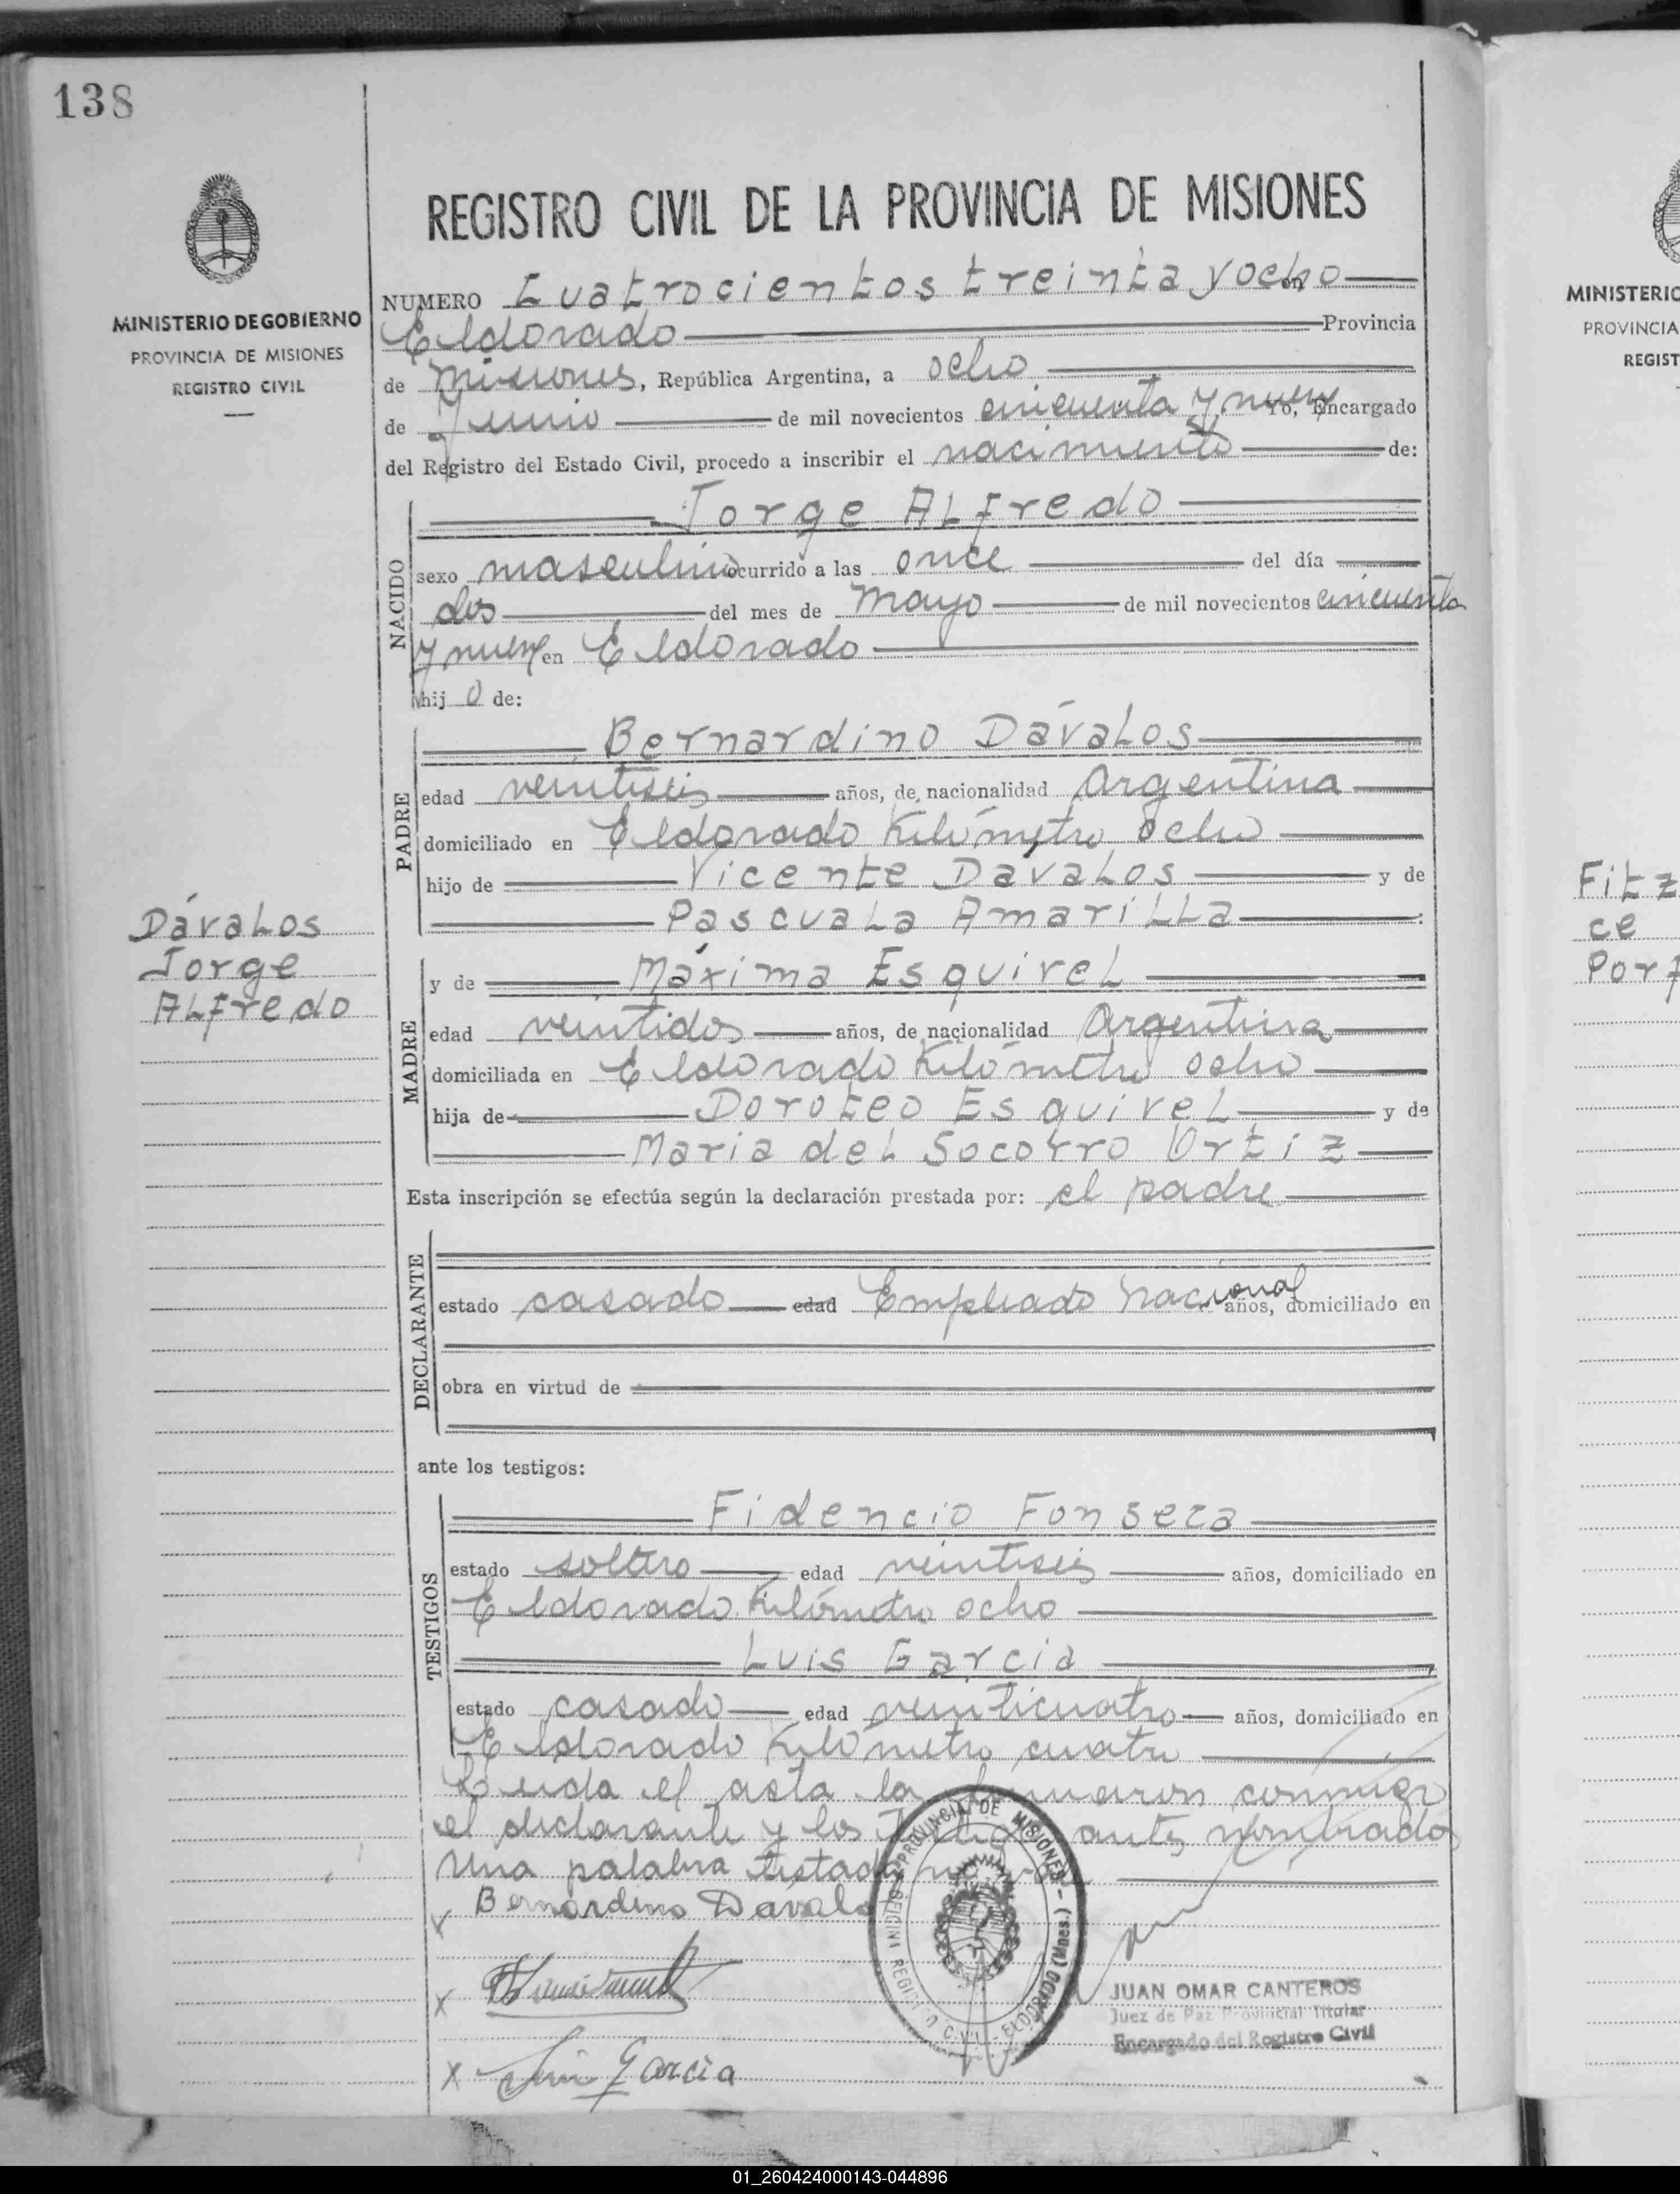 138
REGISTRO CIVIL DE LA PROVINCIA DE MISIONES
MINISTERIO DE GOBIERNO
PROVINCIA DE MISIONES
REGISTRO CIVIL
NUMERO Cuatrocientos treinta y ocho
Eldorado Provincia
de Misiones, República Argentina, a ocho
de Junio de mil novecientos cincuenta y nueve Yo, Encargado
del Registro del Estado Civil, procedo a inscribir el nacimiento de:
NACIDO
Jorge Alfredo
sexo masculino ocurrido a las once del día
dos del mes de Mayo de mil novecientos cincuenta
y nueve en Eldorado
hij o de:
PADRE
Bernardino Dávalos
edad veintiseis años, de nacionalidad Argentina
domiciliado en Eldorado Kilómetro ocho
hijo de Vicente Dávalos y de
Pascuala Amarilla
Dávalos
Jorge
Alfredo
MADRE
y de Máxima Esquivel
edad veintidos años, de nacionalidad Argentina
domiciliada en Eldorado Kilómetro ocho
hija de Doroteo Esquivel y de
Maria del Socorro Ortiz
Esta inscripción se efectúa según la declaración prestada por: el padre
DECLARANTE
estado casado edad Empleado Nacional años, domiciliado en
obra en virtud de
ante los testigos:
TESTIGOS
Fidencio Fonseca
estado soltero edad veintiseis años, domiciliado en
Eldorado Kilómetro ocho
Luis Garcia
estado casado edad veinticuatro años, domiciliado en
Eldorado Kilómetro cuatro
Leida el acta la firmaron conmigo
el declarante y los testigos antes nombrados
Una palabra testada no vale
Bernardino Davalos
x
x Luis Garcia
PROVINCIA DE MISIONES - OFICINA REGISTRO CIVIL - ELDORADO (Mnes.)
JUAN OMAR CANTEROS
Juez de Paz Provincial Titular
Encargado del Registro Civil
MINISTERIO
PROVINCIA
REGIST
Fitz
ce
Porf
01_260424000143-044896